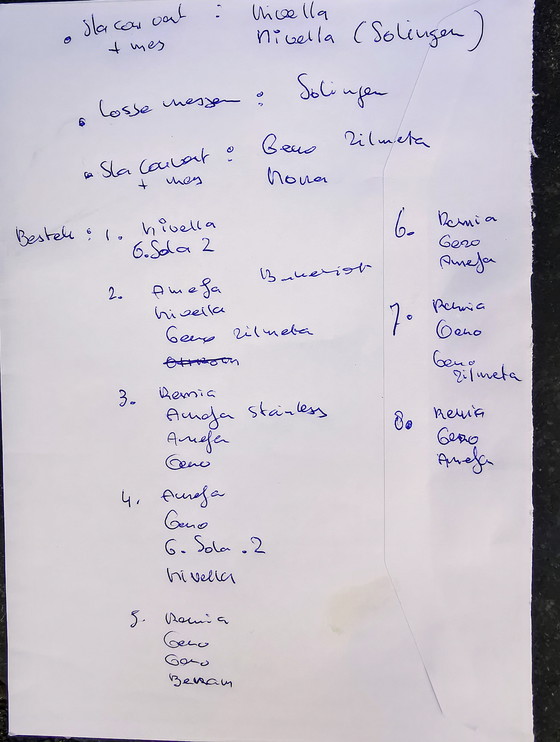 • Sla couvert : Nivella
+ mes Nivella (Solingen)
• Losse messen : Solingen
• Sla couvert : Gero Zilmeta
+ mes
Bestek : 1. Nivella
G. Sola 2
2. Amefa
Nivella
Gero Zilmeta
3. Remia
Amefa Stainless
Amefa
Gero
4. Amefa
Gero
G. Sola . 2
Nivella
5. Remia
Gero
Gero
6. Remia
Gero
Amefa
7. Remia
Gero
Gero
Zilmeta
8. Remia
Gero
Amefa